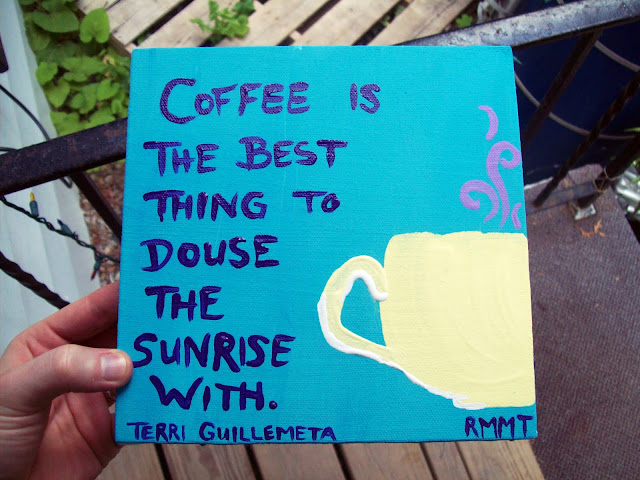 COFFEE IS
THE BEST
THING TO
DOUSE
THE
SUNRISE
WITH.
TERRI GUILLEMETA
RMMT